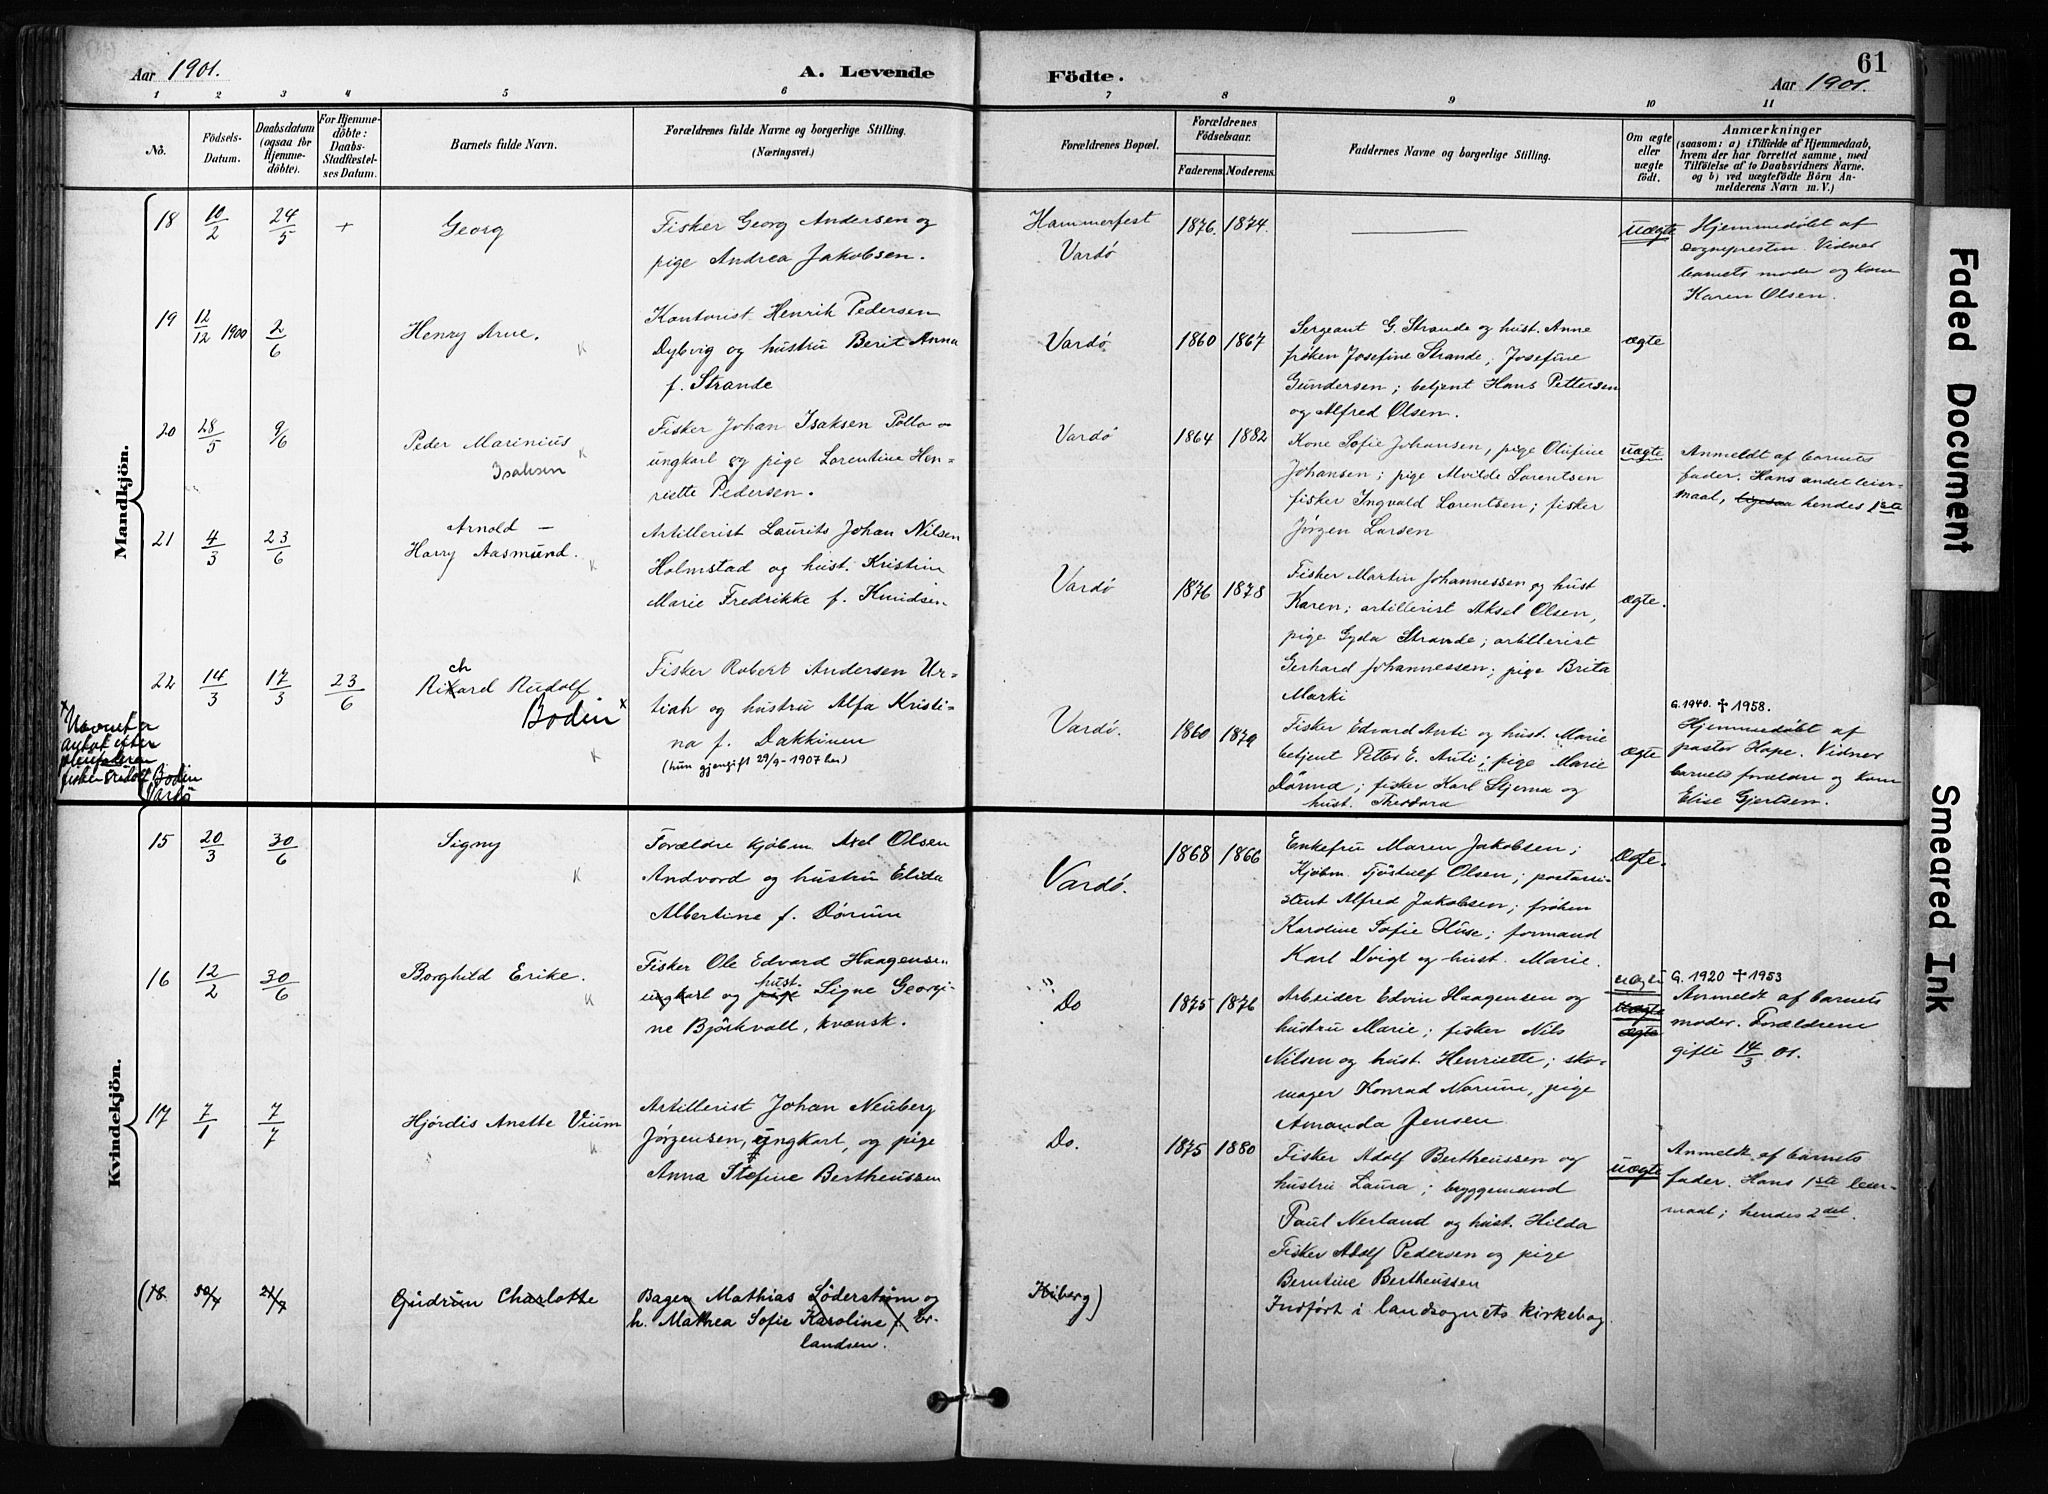 61
Aar 1901.
A. Levende
Födte.
Aar 1901.
1 2 3 4 5 6 7 8 9 10 11
No.
Födsels-
Datum.
Daabsdatum
(ogsaa for
Hjemme-
döbte).
For Hjemme-
döbte:
Daabs-
Stadfæstel-
ses Datum.
Barnets fulde Navn.
Forældrenes fulde Navne og borgerlige Stilling.
(Næringsvei.)
Forældrenes Bopæl.
Forældrenes
Födselsaar.
Faderens. Moderens.
Faddernes Navne og borgerlige Stilling.
Om ægte
eller
uægte
födt.
Anmærkninger
(saasom: a) i Tilfælde af Hjemmedaab,
hvem der har forrettet samme, med
Tilföielse af to Daabsvidners Navne.
og b) ved uægtefödte Börn An-
melderens Navn m. V.)
Mandkjön.
18 10/2 24/5 + Georg
Fisker Georg Andersen og
pige Andrea Jakobsen.
Hammerfest
Vardø
1876. 1874.
uægte
Hjemmedøbt af
sogneprestin. Vidner
barnets moder og kone
Karen Olsen.
19 12/12 1900 2/6 Henry Arve. K
Kontorist Henrik Pedersen
Dybvig og hustru Berit Anna
f. Strande
Vardø 1860 1867
Sergeant G. Strande og hust. Anne
frøken Josefine Strande; Josefine
Gundersen; betjent Hans Pettersen
og Alfred Olsen.
ægte
20 28/5 9/6 Peder Marinius K
Isaksen
Fisker Johan Isaksen Pollo
ungkarl og pige Lorentine Hen-
riette Pedersen.
Vardø 1864 1882
Kone Sofie Johansen, pige Olufine
Johansen; pige Mvilde Lorentsen
fisker Ingvald Lorentsen; fisker
Jørgen Larsen
uægte
Anmeldt af barnets
fader. Hans andet leier-
maal, ligesaa hendes 1ste
21 4/3 23/6
Arnold —
Harry Aasmund. K
Artillerist Laurits Johan Nilsen
Holmstad og hust. Kristine
Marie Fredrikke f. Knudsen
Vardø 1876 1878
Fisker Martin Johannessen og hust
Karen; artillerist Aksel Olsen,
pige Gyda Strande; artillerist
Gerhard Johannessen; pige Brita
Marki
ægte.
22 14/3 17/3 23/6
ch
Rikard Rudolf
Bodin x
K
Fisker Robert Andersen Ur-
tiah og hustru Alfa Kristi-
na f. Dakkinen
(hun gjengift 29/9-1907 her)
Vardø. 1860 1879
Fisker Edvard Anti og hust. Marie
betjent Petter E. Anti; pige Marie
Dømmd; fisker Karl Stjerna og
hust. Theodora
ægte
G. 1940. ✝ 1958.
Hjemmedøbt af
pastor Hope. Vidner
barnets forældre og kone
Elise Gjertsen.
x Navnet er
antat efter
pleiefaderen
fisker Rudolf Bodin
Vardø
Kvindekjön.
15 20/3 30/6 Signy K
Forældre kjøbm. Axel Olsen
Andvord og hustru Elida
Albertine f. Dørum
Vardø. 1868 1866
Enkefru Maren Jakobsen;
Kjøbm. Tjøstulf Olsen; postassi-
stent Alfred Jakobsen; frøken
Karoline Sofie Huse; formand
Karl Voigt og hust. Marie.
Ægte.
16 12/2 30/6 Borghild Erike. K
Fisker Ole Edvard Haagensen
ungkarl og pige hust. Signe Georgi-
ne Bjørkvall, kvænsk.
Do 1875 1876
Arbeider Edvin Haagensen og
hustru Marie; fisker Nils
Nilsen og hust. Henriette; sko-
mager Konrad Norum, pige
Amanda Jensen
uægte
uægte
ægte
G. 1920 ✝ 1953
Anmeldt af barnets
moder. Forældrene
gifte 14/3 01.
17 7/1 7/7 Hjørdis Anette Vium K
Artillerist Johan Neuberg
Jørgensen, ungkarl, og pige
Anna Stefine Bertheussen
Do. 1875 1880
Fisker Adolf Bertheussen og
hustru Laura; bryggemand
Paul Nerland og hust. Hilda
Fisker Adolf Pedersen og pige
Berntine Bertheussen
uægte
Anmeldt af barnets
fader. Hans 1ste leier-
maal; hendes 2det.
(18. 30/4 21/7 Gudrun Charlotte
Bager Mathias Söderstrøm og
h. Mathea Sofie Karoline f. Er-
landsen.
Kiberg)
Indført i landsognets kirkebog.
Faded Document
Smeared Ink